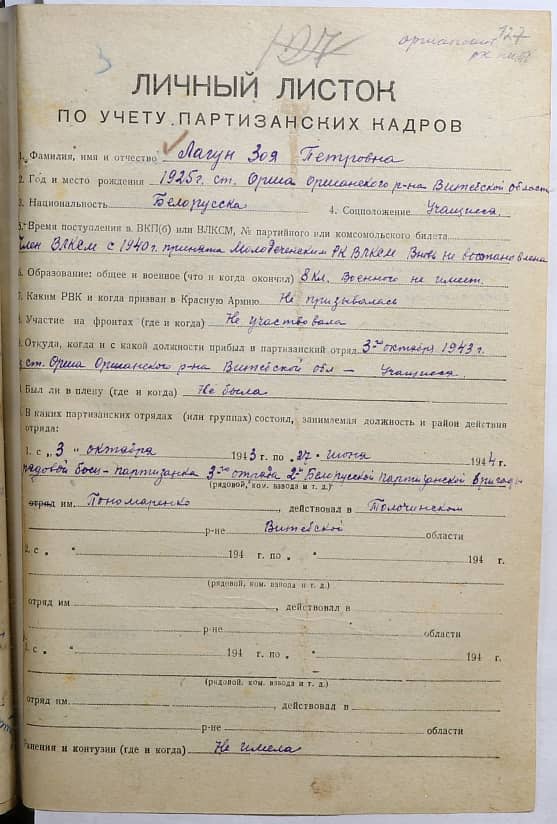 3
127
127
оршанский
РК
ЛИЧНЫЙ ЛИСТОК
ПО УЧЕТУ ПАРТИЗАНСКИХ КАДРОВ
1. Фамилия, имя и отчество Лагун Зоя Петровна
2. Год и место рождения 1925г. ст. Орша Оршанского р-на Витебской области
3. Национальность Белорусска 4. Соцположение Учащиися.
5. Время поступления в ВКП(б) или ВЛКСМ, № партийного или комсомольского билета
Член ВЛКСМ с 1940г. принята Молодеченским РК ВЛКСМ Вновь не востановлена
6. Образование: общее и военное (что и когда окончил) 8 кл. Военного не имеет.
7. Каким РВК и когда призван в Красную Армию Не призывалась
8. Участие на фронтах (где и когда) Не участвовала
9. Откуда, когда и с какой должности прибыл в партизанский отряд 3го октября 1943 г.
ст. Орша Оршанского р-на Витебской обл – Учащиися.
Был ли в плену (где и когда) Не была
В каких партизанских отрядах (или группах) состоял, занимаемая должность и район действия
отряда:
1. с „ 3 " октября 1943 г. по „ 27 " июня 1944 г.
рядовой боец – партизанка 3го отряда 2й Белорусской партизанской бригады
(рядовой, ком. взвода и т. д.)
отряд им. Пономаренко, действовал в Толочинском
р-не Витебской области
2. с „ " 194 г. по „ " 194 г.
(рядовой, ком. взвода и т. д.)
отряд им. , действовал в
р-не области
3. с „ " 194 г. по „ " 194 г.
(рядовой, ком. взвода и т. д.)
отряд им. , действовал в
р-не области
Ранения и контузии (где и когда) Не имела